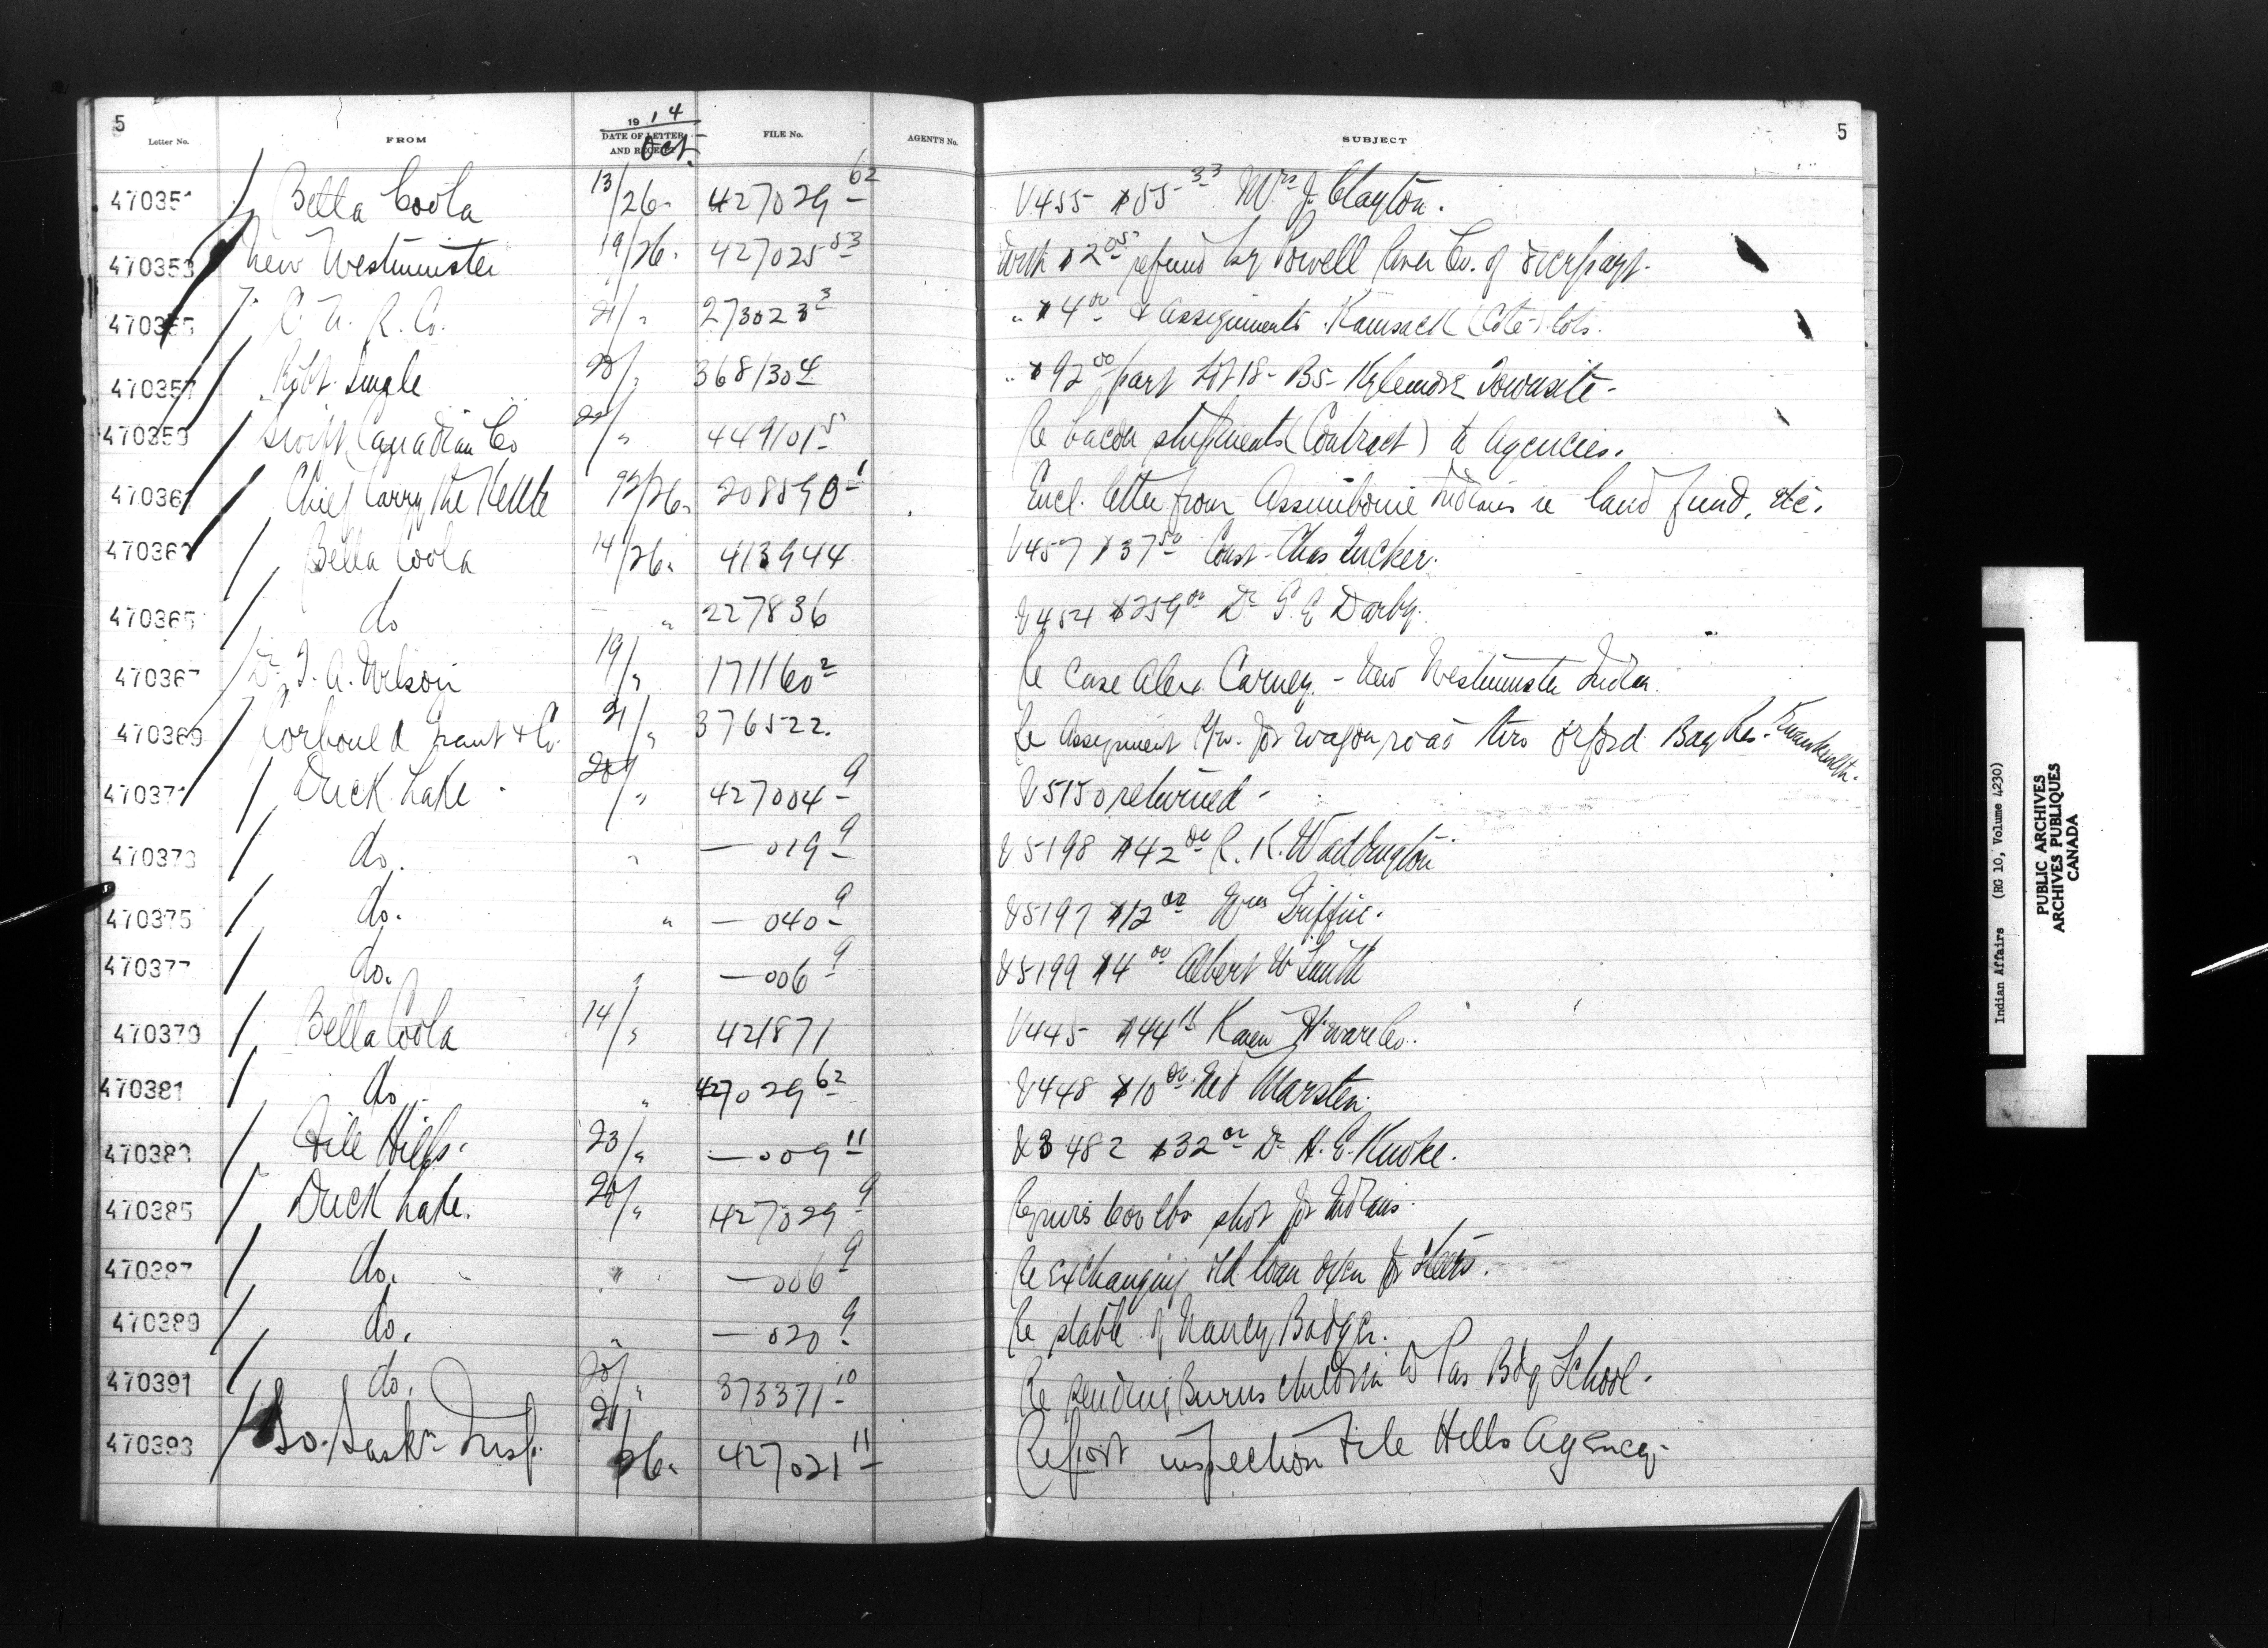 5
1914
Letter No. FROM DATE OF LETTER AND RECEIPT Oct. FILE No. AGENT'S No. SUBJECT 5
470351 Bella Coola 13/26. 427029 62 V455 $55 33 Mrs J. Clayton.
470353 New Westminster 19/26. 427025 53 With $2 05 refund by Powell River Co. of overpayt.
470355 C. N. R. Co. 21/" 273023 3 " $4 00 & assignments Kamsack (Cote) lots.
470357 Robt. 20/" 368130 4 " $92 00 part Lot 18- B5- Kylemore Townsite-
470359 Swift Canadian Co 22/" 449101 5 Re bacon shipments (Contract) to agencies.
470361 Chief Carry the Kettle 22/26. 208590 1 Encl. letter from Assiniboine Indians re land fund, etc.
470363 Bella Coola 14/26. 413944 V457 $37 50 Const. Chas Tucker.
470365 do " 227836 V454 $259 00 Dr G. E Darby.
470367 Dr. T. A. Wilson 19/" 171160 2 Re Case Alex Carney. - New Westminster Indian.
470369 Corbould Grant & Co. 21/" 376522. Re Assignment R/w. for wagon road thro Orford Bay Res.
470371 Duck Lake 20/" 427004 9 V5150 returned-
470373 do. " — 019 9 V5198 $42 00 R. K. Waddington
470375 do. " — 040 9 V5197 $12 00 Wm Griffin.
470377 do. " — 006 9 V5199 $4 00 Albert W Smith
470379 Bella Coola 14/" 421871 V445 $44 Hware Co.
470381 do " 427029 62 V448 $10 00 Ned Marsten.
470383 File Hills. 23/" — 009 11 V3482 $32 00 Dr H. E. Knoke.
470385 Duck Lake. 20/" 427029 9 Requires 600 lbs shot for Indians.
470387 do. " — 006 9 Re exchanging old loan oxen for steers.
470389 do. " — 020 9 Re stable of Nancy Badger.
470391 do. 20/" 373371 10 Re sending Burns children to Pas Bdg School.
470393 So. Saskn Insp. 21/26. 427021 11 Report inspection File Hills Agency-
Indian Affairs (RG 10, Volume 4230)
PUBLIC ARCHIVES
ARCHIVES PUBLIQUES
CANADA